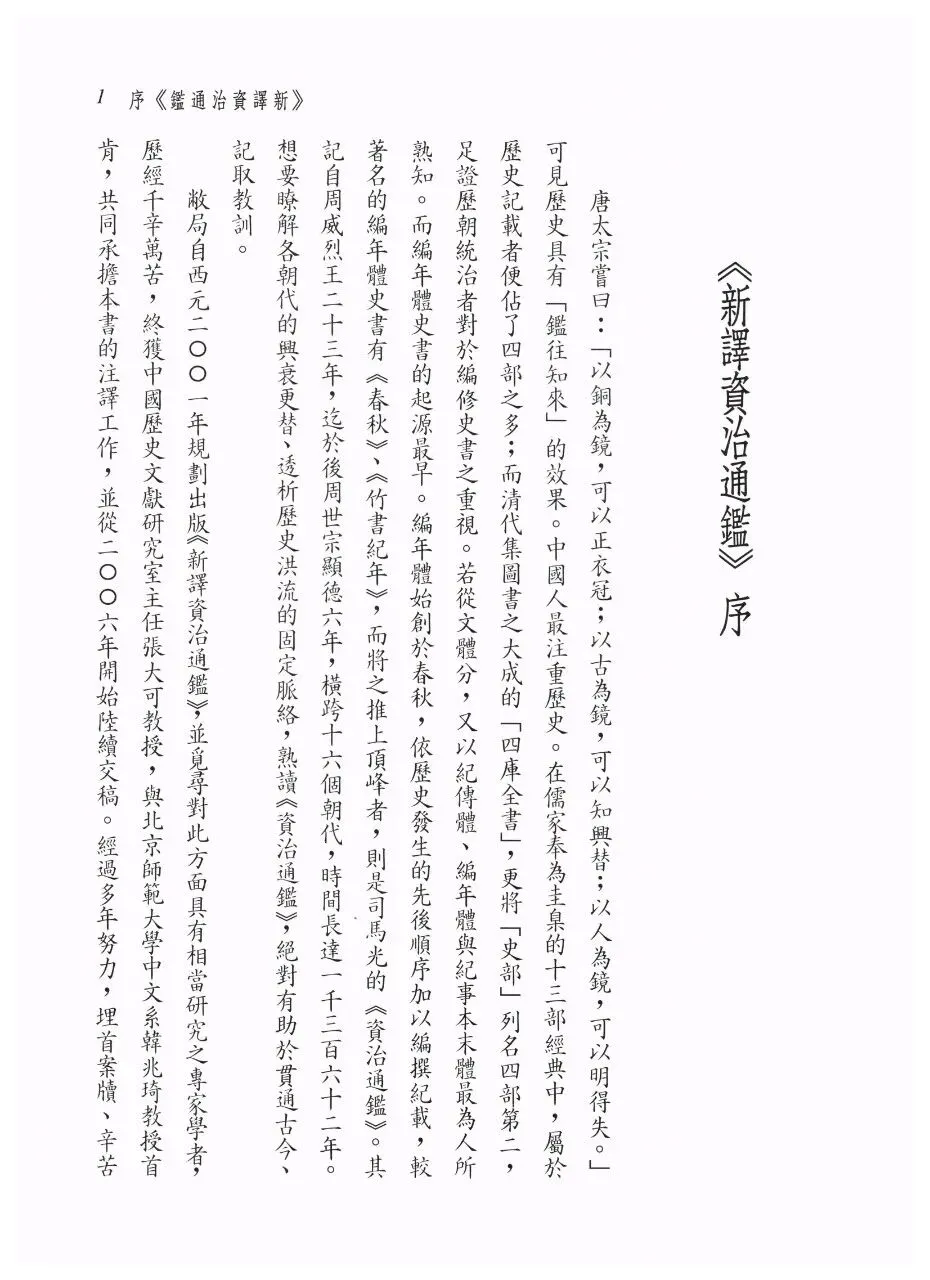 序《鑑通治資譯新》 1
《新譯資治通鑑》序
唐太宗嘗曰：「以銅為鏡，可以正衣冠；以古為鏡，可以知興替；以人為鏡，可以明得失。」
可見歷史具有「鑑往知來」的效果。中國人最注重歷史。在儒家奉為圭臬的十三部經典中，屬於
歷史記載者便佔了四部之多；而清代集圖書之大成的「四庫全書」，更將「史部」列名四部第二，
足證歷朝統治者對於編修史書之重視。若從文體分，又以紀傳體、編年體與紀事本末體最為人所
熟知。而編年體史書的起源最早。編年體始創於春秋，依歷史發生的先後順序加以編撰紀載，較
著名的編年體史書有《春秋》、《竹書紀年》，而將之推上頂峰者，則是司馬光的《資治通鑑》。其
記自周威烈王二十三年，迄於後周世宗顯德六年，橫跨十六個朝代，時間長達一千三百六十二年。
想要瞭解各朝代的興衰更替、透析歷史洪流的固定脈絡，熟讀《資治通鑑》，絕對有助於貫通古今、
記取教訓。
敝局自西元二〇〇一年規劃出版《新譯資治通鑑》，並覓尋對此方面具有相當研究之專家學者，
歷經千辛萬苦，終獲中國歷史文獻研究室主任張大可教授，與北京師範大學中文系韓兆琦教授首
肯，共同承擔本書的注譯工作，並從二〇〇六年開始陸續交稿。經過多年努力，埋首案牘、辛苦